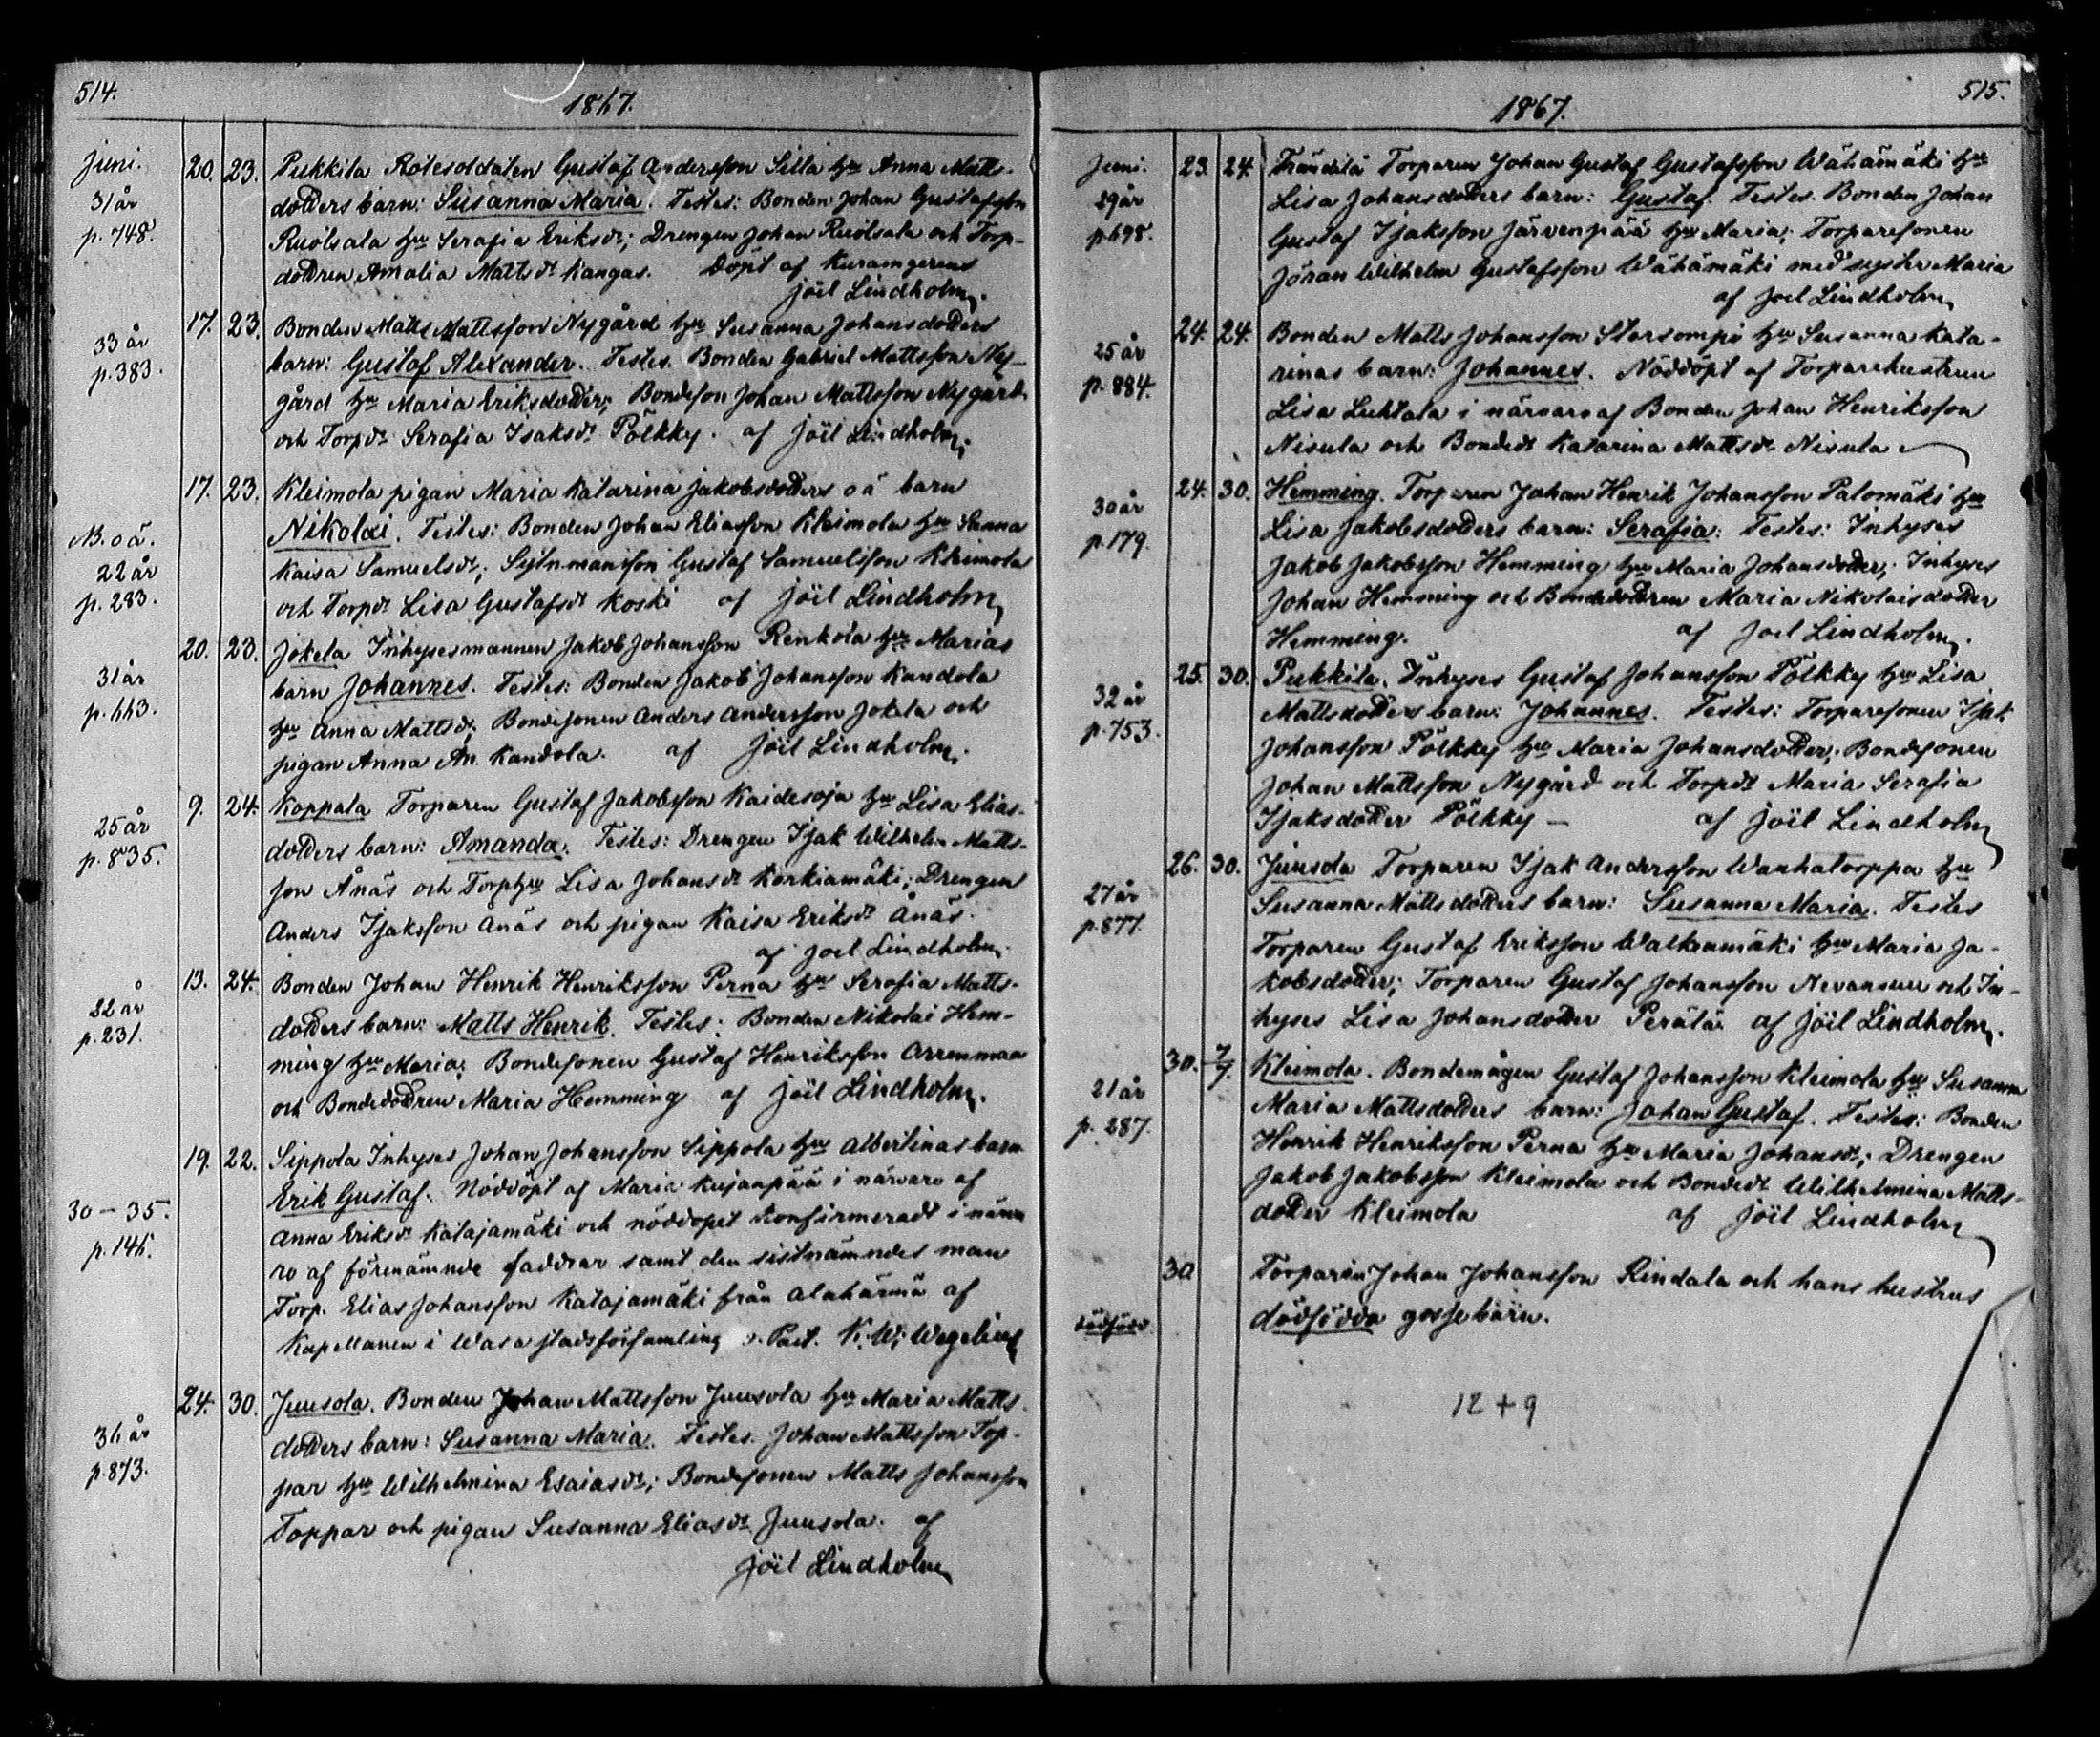 514.
1867.
Juni.
31 år
p. 748.
20. 23. Pukkila Rotesoldaten Gustaf Andersson Silla hu Anna Matts-
dotters barn: Susanna Maria. Testes: Bonden Johan Gustafsson
Ruotsala hu Serafia Eriksdr; Drengen Johan Ruotsala och Torp-
dottren Amalia Mattsdr Kangas. Döpt af
Joël Lindholm.
33 år
p. 383.
17. 23. Bonden Matts Mattsson Nygård hu Susanna Johansdotters
barn: Gustaf Alexander. Testes. Bonden Gabriel Mattsson Ny-
gård hu Maria Eriksdotter; Bondeson Johan Mattsson Nygård
och Torpdr Serafia Isaksdr Pölkky. af Joël Lindholm.
NB. oä.
22 år
p. 283.
17. 23. Kleimola pigan Maria Katarina Jakobsdotters oä barn
Nikolai. Testes: Bonden Johan Eliasson Kleimola hu Sanna
Kaisa Samuelsdr; Sytn.mansson Gustaf Samuelsson Kleimola
och Torpdr Lisa Gustafsdr Koski af Joël Lindholm
31 år
p. 663.
20. 23. Jokela Inhysesmannen Jakob Johansson Renkola hu Marias
barn Johannes. Testes: Bonden Jakob Johansson Kandola
hu Anna Mattsdr; Bondesonen Anders Andersson Jokela och
pigan Anna An. Kandola. af Joël Lindholm.
25 år
p. 835.
9. 24. Koppala Torparen Gustaf Jakobsson Kaidesoja hu Lisa Elias-
dotters barn: Amanda. Testes: Drengen Isak Wilhelm Matts-
son Ånäs och Torphu Lisa Johansdr Korkiamäki; Drengen
Anders Isaksson Ånäs och pigan Kaisa Eriksdr Ånäs.
af Joel Lindholm.
22 år
p. 231.
13. 24. Bonden Johan Henrik Henriksson Perna hu Serafia Matts-
dotters barn: Matts Henrik. Testes: Bonden Nikolai Hem-
ming hu Maria; Bondesonen Gustaf Henriksson Orrenmaa
och Bondedottren Maria Hemming af Joël Lindholm.
30 – 35.
p. 146.
19. 22. Sippola Inhyses Johan Johansson Sippola hu Albertinas barn
Erik Gustaf. Nöddöpt af Maria Kujanpää i närvaro af
Anna Eriksdr Katajamäki och nöddopet konfirmeradt i närva
ro af förenämnde faddrar samt den sistnämndes man
Torp. Elias Johansson Katajamäki från Alahärmä af
Kapellanen i Wasa stadsförsamling v. Past. K. W. Wegelius
36 år
p. 873.
24. 30. Juusola. Bonden Johan Mattsson Juusola hu Maria Matts
dotters barn: Susanna Maria. Testes. Johan Mattsson Top-
par hu Wilhelmina Esaiasdr; Bondesonen Matts Johansson
Toppar och pigan Susanna Eliasdr Juusola. af
Joël Lindholm
515.
1867.
Juni.
29 år
p. 698.
23. 24. Torparen Johan Gustaf Gustafsson Wähämäki hu
Lisa Johansdotters barn: Gustaf. Testes. Bonden Johan
Gustaf Isaksson Järvenpää hu Maria; Torparesonen
Jöran Wilhelm Gustafsson Wähämäki med syster Maria
af Joel Lindholm
25 år
p. 884.
24. 24. Bonden Matts Johansson Storsompi hu Susanna Kata-
rinas barn: Johannes. Nöddöpt af Torparehustrun
Lisa Luhtala i närvaro af Bonden Johan Henriksson
Nisula och Bondedr Katarina Mattsdr Nisula
30 år
p. 179.
24. 30. Hemming. Torparen Johan Henrik Johansson Palomäki hu
Lisa Jakobsdotters barn: Serafia: Testes: Inhyses
Jakob Jakobsson Hemming hu Maria Johansdotter; Inhyses
Johan Hemming och Bondedottren Maria Nikolaisdotter
Hemming. af Joel Lindholm.
32 år
p. 753.
25. 30. Pukkila. Inhyses Gustaf Johansson Pölkky hu Lisa
Mattsdotters barn: Johannes. Testes: Torparesonen Isak
Johansson Pölkky hu Maria Johansdotter; Bondesonen
Johan Mattsson Nygård och Torpdr Maria Serafia
Isaksdotter Pölkky – af Joël Lindholm
27 år
p. 877.
26. 30. Juusola Torparen Isak Andersson Wanhatorppa hu
Susanna Mattsdotters barn: Susanna Maria. Testes
Torparen Gustaf Eriksson Walkamäki hu Maria Ja-
kobsdotter; Torparen Gustaf Johansson och In-
hyses Lisa Johansdotter Perälä af Joël Lindholm.
21 år
p. 287.
30. 7/7. Kleimola. Bondemågen Gustaf Johansson Kleimola hu Susanna
Maria Mattsdotters barn: Johan Gustaf. Testes: Bonden
Henrik Henriksson Perna hu Maria Johansdr; Drengen
Jakob Jakobsson Kleimola och Bondedr Wilhelmina Matts-
dotter Kleimola af Joël Lindholm
dödfödd
30 Torparen Johan Johansson Rindala och hans hustrus
dödfödda gossebarn.
12 + 9